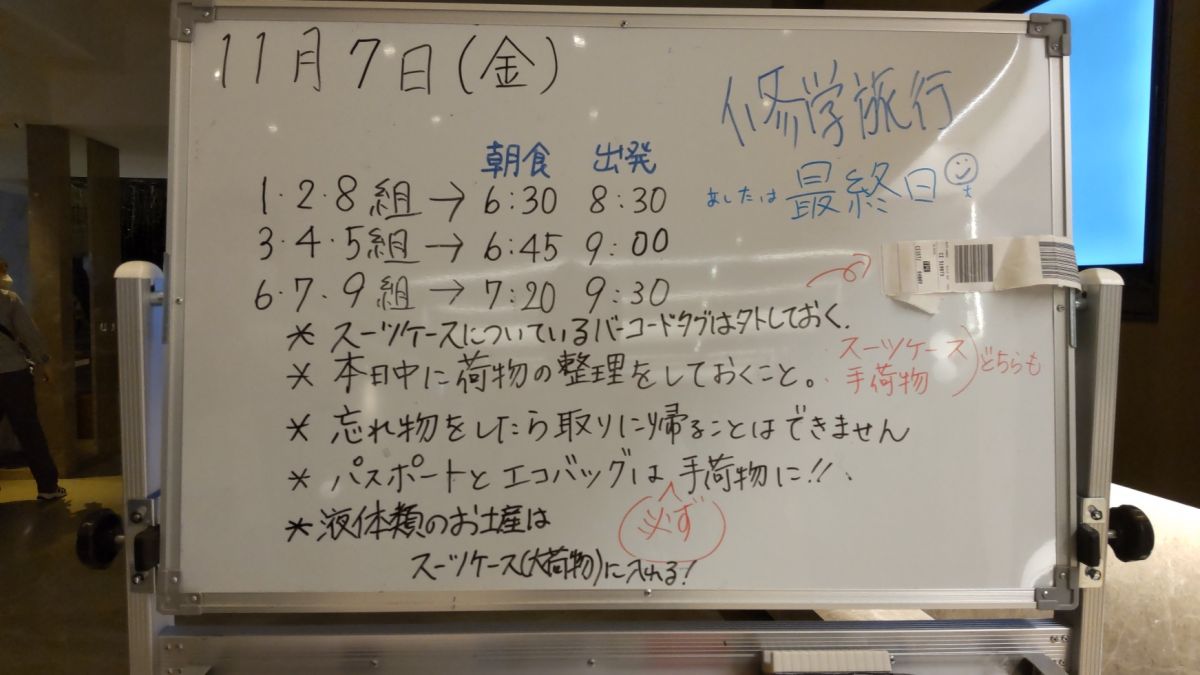 11月7日(金)
修学旅行
あしたは 最終日
朝食 出発
1・2・8組→ 6:30 8:30
3・4・5組→ 6:45 9:00
6・7・9組→ 7:20 9:30
* スーツケースについているバーコードタグは外しておく.
* 本日中に荷物の整理をしておくこと。
スーツケース
手荷物
どちらも
* 忘れ物をしたら取りに帰ることはできません
* パスポートとエコバッグは手荷物に!!
必ず
* 液体類のお土産は
スーツケース(大荷物)に入れる!